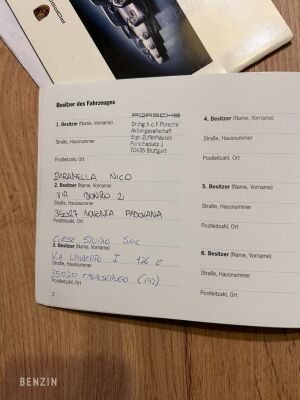 PORSCHE
Besitzer des Fahrzeuges
1. Besitzer (Name, Vorname)
PORSCHE
Dr.Ing.h.c.F.Porsche
Aktiengesellschaft
Stgt-Zuffenhausen
Porscheplatz 1
70435 Stuttgart
Straße, Hausnummer
Postleitzahl, Ort
NICO
2. Besitzer (Name, Vorname)
VIA
Straße, Hausnummer
NOVENTA PADOVANA
Postleitzahl, Ort
STUDIO SNC
3. Besitzer (Name, Vorname)
VIA UMBERTO I 126 E
Straße, Hausnummer
35020 CASALSERUGO (PD)
Postleitzahl, Ort
2
4. Besitzer (Name, Vorname)
Straße, Hausnummer
Postleitzahl, Ort
5. Besitzer (Name, Vorname)
Straße, Hausnummer
Postleitzahl, Ort
6. Besitzer (Name, Vorname)
Straße, Hausnummer
Postleitzahl, Ort
BENZIN